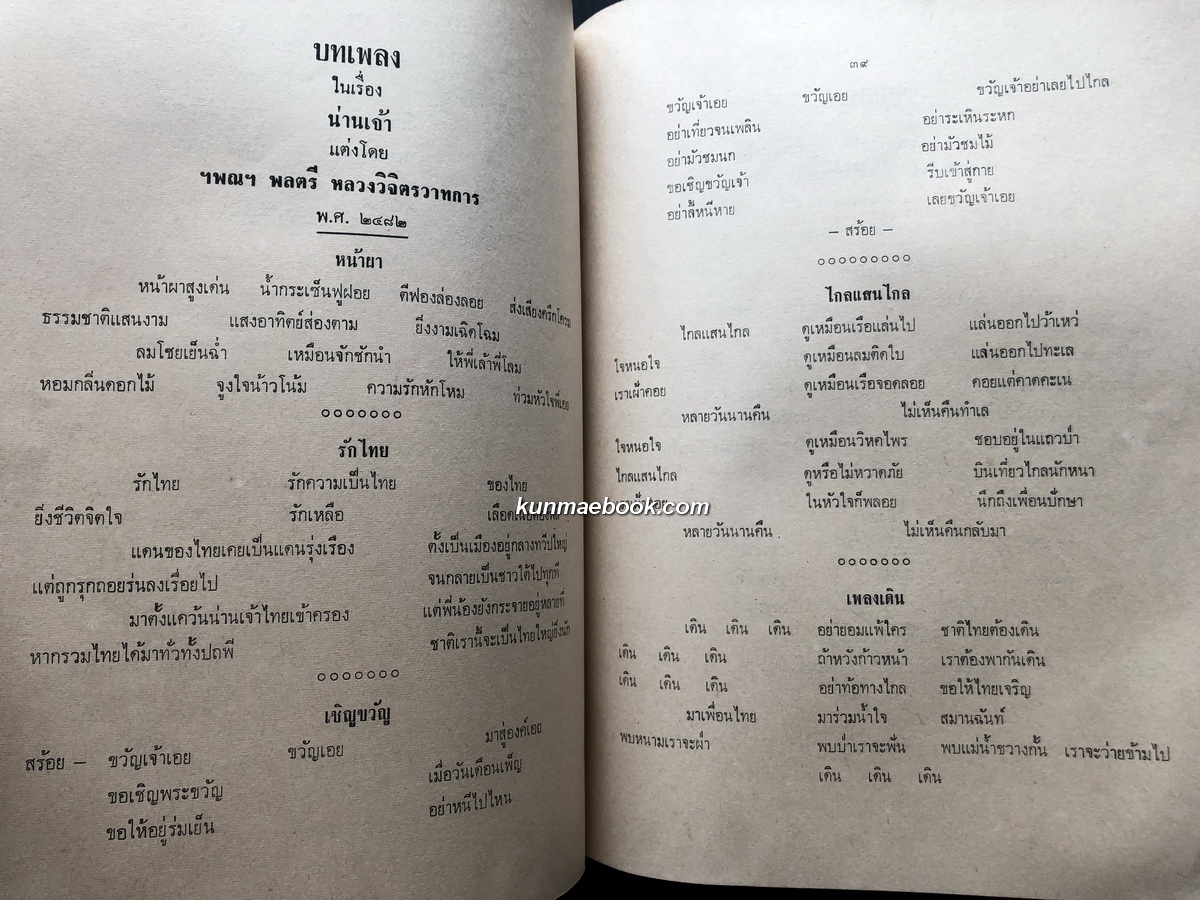 บทเพลง
ในเรื่อง
น่านเจ้า
แต่งโดย
ฯพณฯ พลตรี หลวงวิจิตรวาทการ
พ.ศ. ๒๔๘๒
หน้าผา
หน้าผาสูงเด่น น้ำกระเซ็นฟูฝอย ตีฟองล่องลอย ส่งเสียงครึกโครม
ธรรมชาติแสนงาม แสงอาทิตย์ส่องตาม ยิ่งงามเฉิดโฉม
ลมโชยเย็นฉ่ำ เหมือนจักชักนำ ให้พี่เล้าพี่โลม
หอมกลิ่นดอกไม้ จูงใจน้าวโน้ม ความรักหักโหม ท่วมหัวใจพี่เอย
๐๐๐๐๐๐๐
รักไทย
รักไทย รักความเป็นไทย ของไทย
ยิ่งชีวิตจิตใจ รักเหลือ
แดนของไทยเคยเป็นแดนรุ่งเรือง ตั้งเป็นเมืองอยู่กลางทวีปใหญ่
แต่ถูกรุกถอยร่นลงเรื่อยไป จนกลายเป็นชาวใต้ไปทุกที
มาตั้งแคว้นน่านเจ้าไทยเข้าครอง แต่พี่น้องยังกระจายอยู่หลายที่
หากรวมไทยได้มาทั่วทั้งปถพี ชาติเรานี้จะเป็นไทยใหญ่ยิ่งนัก
๐๐๐๐๐๐๐
เชิญขวัญ
สร้อย — ขวัญเจ้าเอย ขวัญเอย มาสู่องค์เอย
ขอเชิญพระขวัญ เมื่อวันเดือนเพ็ญ
ขอให้อยู่ร่มเย็น อย่าหนีไปไหน
๓๙
ขวัญเจ้าเอย ขวัญเอย ขวัญเจ้าอย่าเลยไปไกล
อย่าเที่ยวจนเพลิน อย่าระเหินระหก
อย่ามัวชมนก อย่ามัวชมไม้
ขอเชิญขวัญเจ้า รีบเข้าสู่กาย
อย่าลี้หนีหาย เลยขวัญเจ้าเอย
— สร้อย —
๐๐๐๐๐๐๐๐๐
ไกลแสนไกล
ไกลแสนไกล ดูเหมือนเรือแล่นไป แล่นออกไปว้าเหว่
ใจหนอใจ ดูเหมือนลมติดใบ แล่นออกไปทะเล
เราเฝ้าคอย ดูเหมือนเรือจอดลอย คอยแต่คาดคะเน
หลายวันนานคืน ไม่เห็นคืนทำเล
ใจหนอใจ ดูเหมือนวิหคไพร ชอบอยู่ในแถวป่า
ไกลแสนไกล ดูหรือไม่หวาดภัย บินเที่ยวไกลนักหนา
ในหัวใจก็พลอย นึกถึงเพื่อนปักษา
หลายวันนานคืน ไม่เห็นคืนกลับมา
๐๐๐๐๐๐๐
เพลงเดิน
เดิน เดิน เดิน อย่ายอมแพ้ใคร ชาติไทยต้องเดิน
เดิน เดิน เดิน ถ้าหวังก้าวหน้า เราต้องพากันเดิน
เดิน เดิน เดิน อย่าท้อทางไกล ขอให้ไทยเจริญ
มาเพื่อนไทย มาร่วมน้ำใจ สมานฉันท์
พบหนามเราจะฝ่า พบป่าเราจะฟัน พบแม่น้ำขวางกั้น เราจะว่ายข้ามไป
เดิน เดิน เดิน
kunmaebook.com